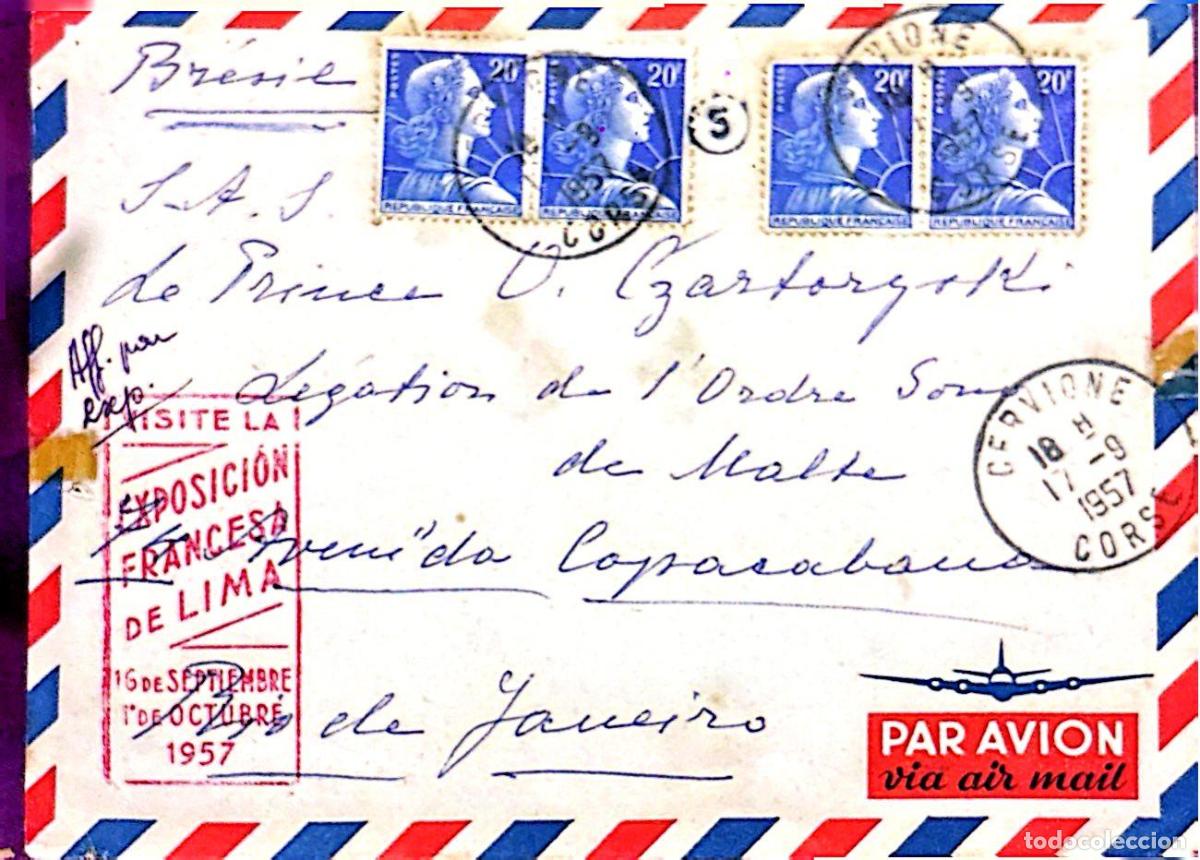 Brésil
POSTES 20F
REPUBLIQUE FRANÇAISE
POSTES 20F
REPUBLIQUE FRANÇAISE
1957
CORSE
S
POSTES 20F
REPUBLIQUE FRANÇAISE
POSTES 20F
REPUBLIQUE FRANÇAISE
CERVIONE
1957
CORSE
S.A.S.
Le Prince O. Czartoryski
Aff. par
exp.
Légation de l'Ordre Souv
de Malte
Avenida Copacabana
Rio de Janeiro
VISITE LA
EXPOSICIÓN
FRANCESA
DE LIMA
16 DE SEPTIEMBRE
1º DE OCTUBRE
1957
CERVIONE
18 H
17-9
1957
CORSE
PAR AVION
via air mail
todocoleccion